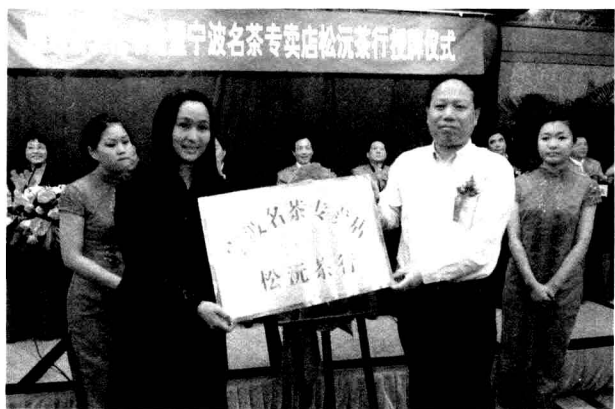 宁波名茶专卖店松沅茶行授牌仪式
宁波名茶专卖店
松沅茶行